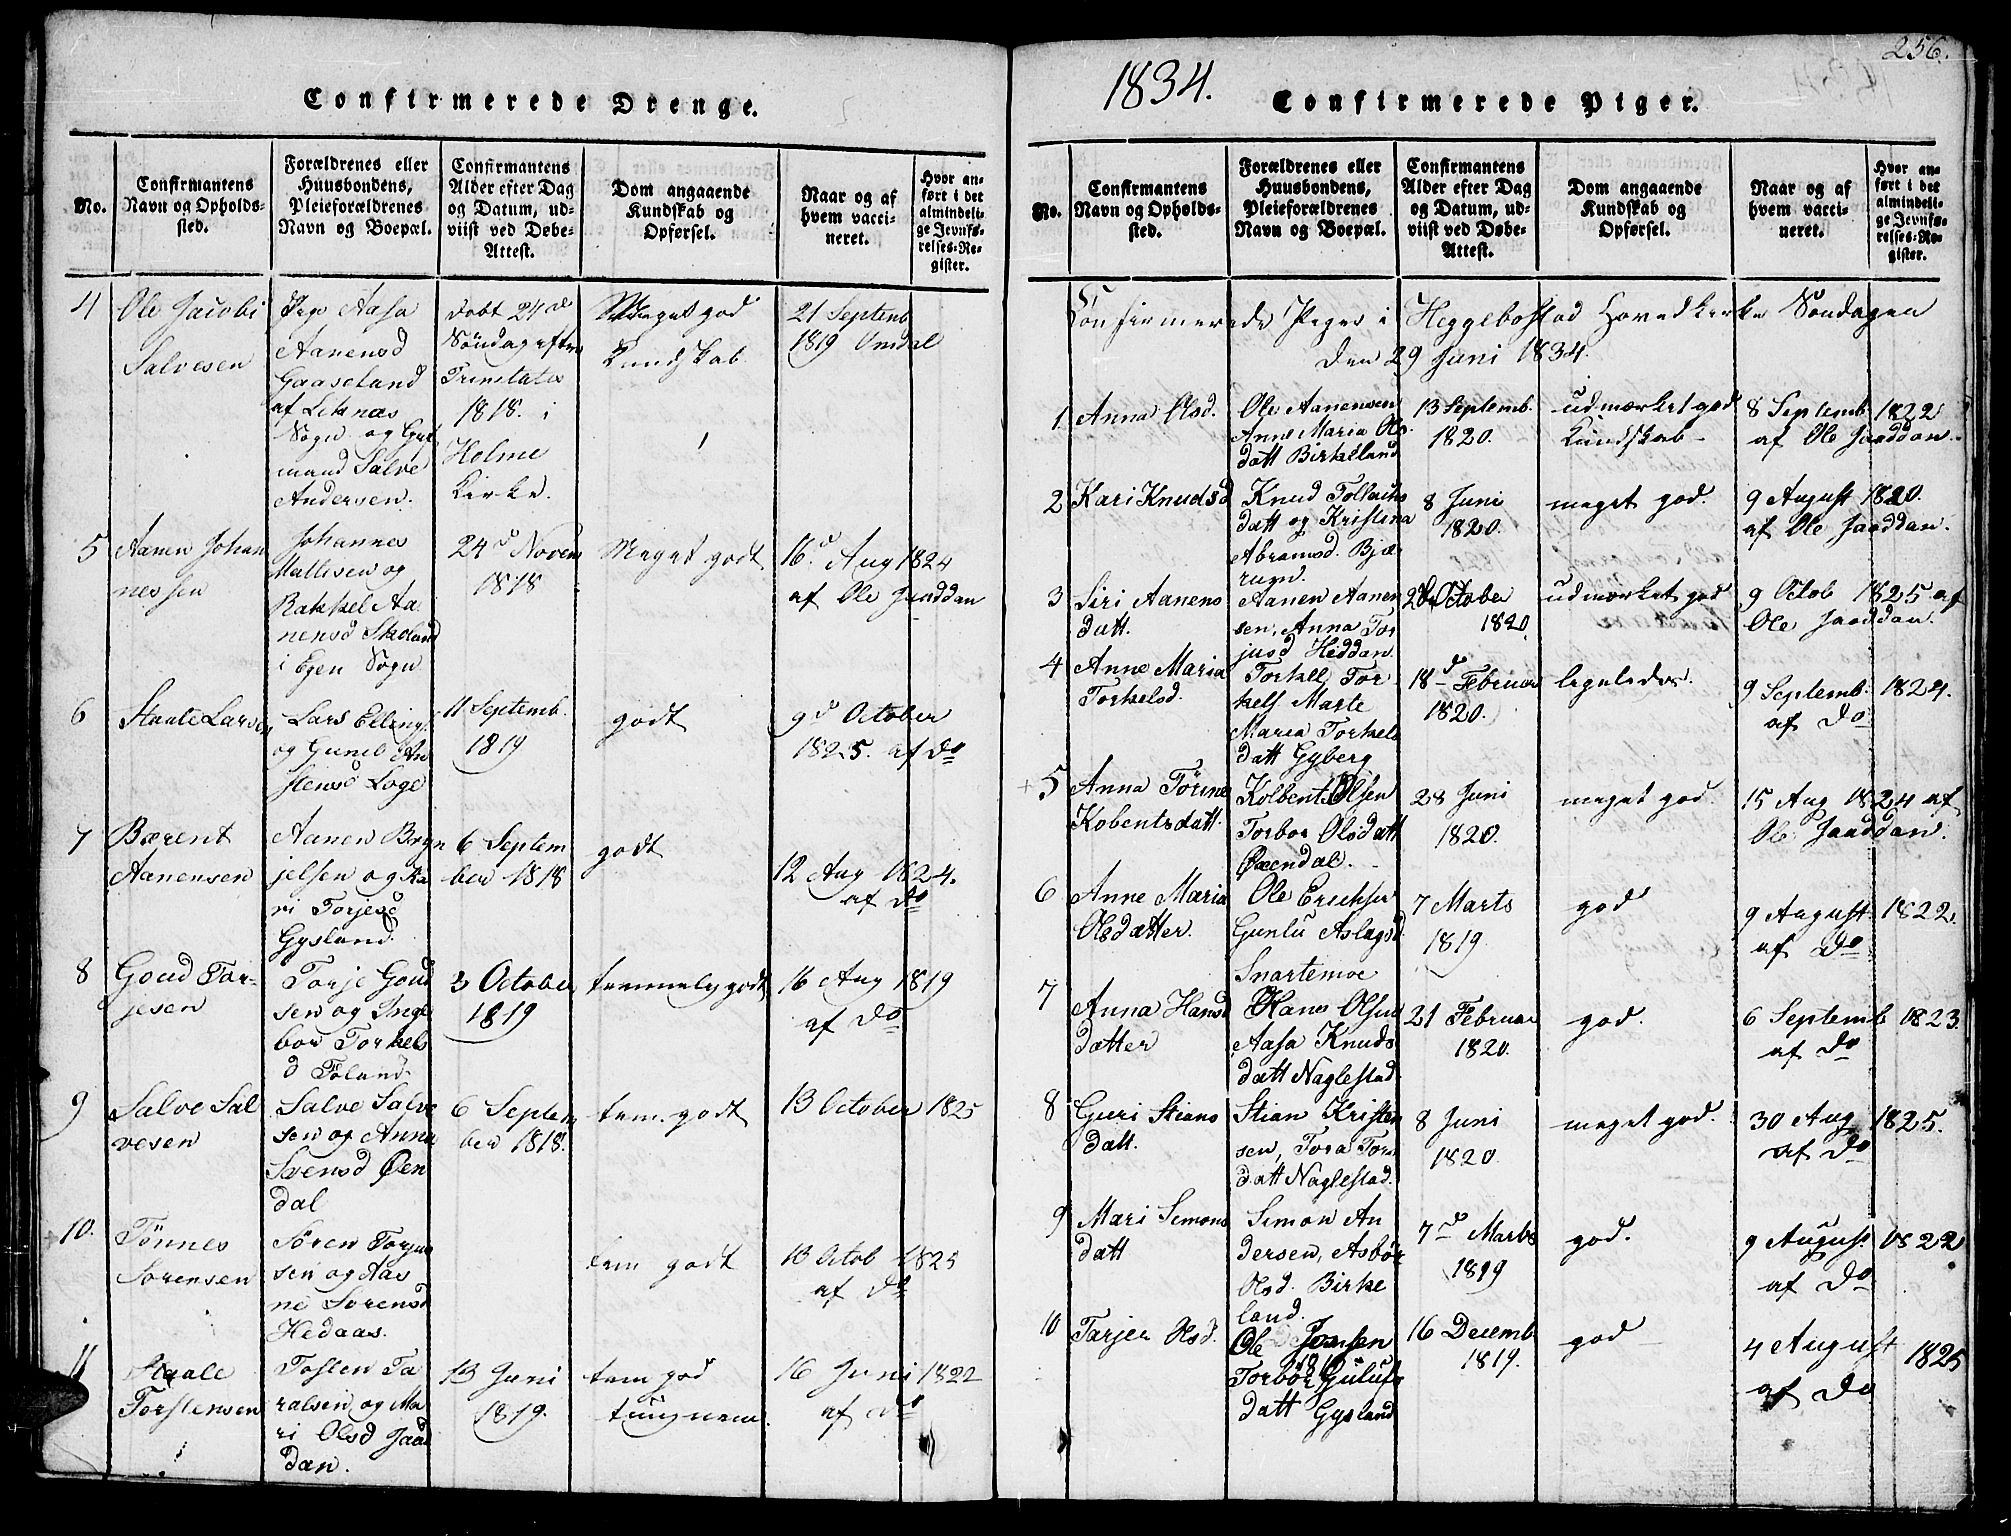 Confirmerede Drenge.
No.
Confirmantens
Navn og Opholds-
sted.
Forældrenes eller
Huusbondens,
Pleieforældrenes
Navn og Boepæl.
Confirmantens
Alder efter Dag
og Datum, ud-
viist ved Døbe-
Attest.
Dom angaaende
Kundskab og
Opførsel.
Naar og af
hvem vacci-
neret.
Hvor an-
ført i det
almindeli-
ge Jevnfø-
relses-Re-
gister.
4
Ole Jacobi
Salvesen
Pige Aasa
Aanensd
Gaaseland
af Leknæs
Sogn og Gift
mand Salve
Andersen.
Døbt 24 d
Søndag efter
Trinitatis
1818. i
Holme
Kirke.
Meget god
Kundskab
21 Septemb
1819 Undal
5
Aanen Johan
nessen
Johannes
Mattisen og
Rakkel Aa
nensd Skeland
i Egen Sogn
24 d Novem
1818
Meget godt
16 d Aug 1824
af Ole Jaaddan
6
Staale Larsen
Lars Ellings
og Guneld An
stensd Loge
11 Septemb.
1819
godt
9 d October
1825. af do
7
Bærent
Aanensen
Aanen Bryn
jelsen og Ka
ri Torjesd
Gysland.
6 Septem
ber 1818
godt
12 Aug 1824.
af do
8
Goud Tor-
jesen
Torje Goud
sen og Inge
bor Torkels
d Føland.
3 October
1819
temmelig godt
16 Aug 1819
af do
9
Salve Sal
vesen
Salve Salve
sen og Anna
Svensd Øen
dal
6 Septem
ber 1818.
tem. godt
13 October 1825
10.
Tönnes
Sorensen
Sören Torjus
sen og Aas
ne Sörensd
Hedaas.
tem godt
13 Octob 1825
af do
11
Staale
Torstensen
Tosten Ta
ralsen og Ma
ri Olsd Jaad
dan.
13 Juni
1819.
tem god
tungnem.
16 Juni 1822
af do
256.
1834.
Confirmerede Piger.
No.
Confirmantens
Navn og Opholds-
sted.
Forældrenes eller
Huusbondens,
Pleieforældrenes
Navn og Boepæl.
Confirmantens
Alder efter Dag
og Datum, ud-
viist ved Døbe-
Attest.
Dom angaaende
Kundskab og
Opførsel.
Naar og af
hvem vacci-
neret.
Hvor an-
ført i det
almindeli-
ge Jevnfø-
relses-Re-
gister.
Confirmerede Piger i Heggebostad Hovedkirke Søndagen
den 29 Juni 1834.
1
Anna Olsd.
Ole Aanensen
Anne Maria Ols
datt Birkeland
13 Septemb.
1820.
udmærket god
Kundskab
8 Septemb 1822
af Ole Jaaddan.
2
Kari Knudsd
Knud Tollachs
datt og Kristina
Abramsd. Bjæ
rugn.
8 Juni
1820.
meget god.
9 August 1820.
af Ole Jaaddan.
3
Siri Aanens
datt.
Aanen Aanen
sen, Anna Tor
jusd Heddan
28 October
1820
udmærket god
9 Octob 1825 af
Ole Jaaddan.
4
Anne Maria
Torkelsd.
Torkell Tor
kels Marte
Maria Torkels
datt Gyberg
18 d Februar
1820.
ligeledes.
9 Septemb. 1824.
af do
+ 5
Anna Törine
Kobentsdatt.
Kolbent Olsen
Torbor Olsdatt
Øxendal.
28 Juni
1820.
meget god.
15 Aug 1824 af
Ole Jaaddan.
6
Anne Maria
Olsdatter.
Ole Erichsen
Gunlu Aslagsd.
Snartemoe
7 Marts
1819.
god
9 August 1822.
af do
7
Anna Hans
datter
Hans Olsen
Aasa Knuds
datt Naglestad
21 Februar
1820.
god.
6 Septemb 1823.
af do
8
Guri Stians
datt.
Stian Kristen
sen, Tora Tors
datt Naglestad.
8 Juni
1820.
meget god.
30 Aug 1825.
af do
9
Mari Simons
datt
Simon An
dersen, Asbör
Olsd. Birke
land.
7 d Marts
1819
god.
9 August 1822
af do
10
Tarjer Olsd.
Ole Jensen
Torbör Gulufs
datt Gysland
16 Decemb
1819.
god
4 August 1825
af do